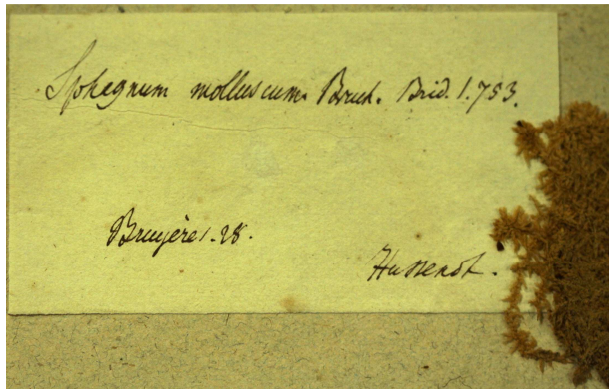 Sphagnum molluscum. Bruch. Brid. 1.753.
Bruyère 1.28.